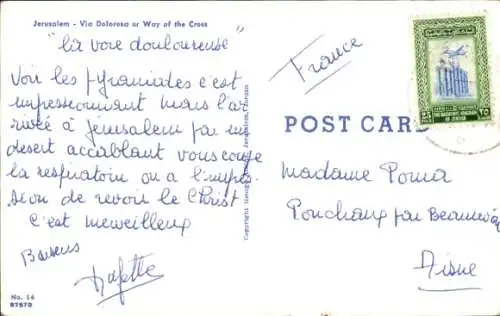 Jerusalem - Via Dolorosa or Way of the Cross
"la voie douloureuse"
Voir les pyramides c'est
impressionnant mais l'ar
rivée à Jérusalem par un
desert accablant vous coupe
la respiration on a l'impres
sion de revoir le Christ
C'est merveilleux
Baisers
No. 14
97670
Jerusalem, Jordan
France
POST CARD
THE HASHEMITE KINGDOM
OF JORDAN
25
٢٥
Madame Poma
par
Aisne